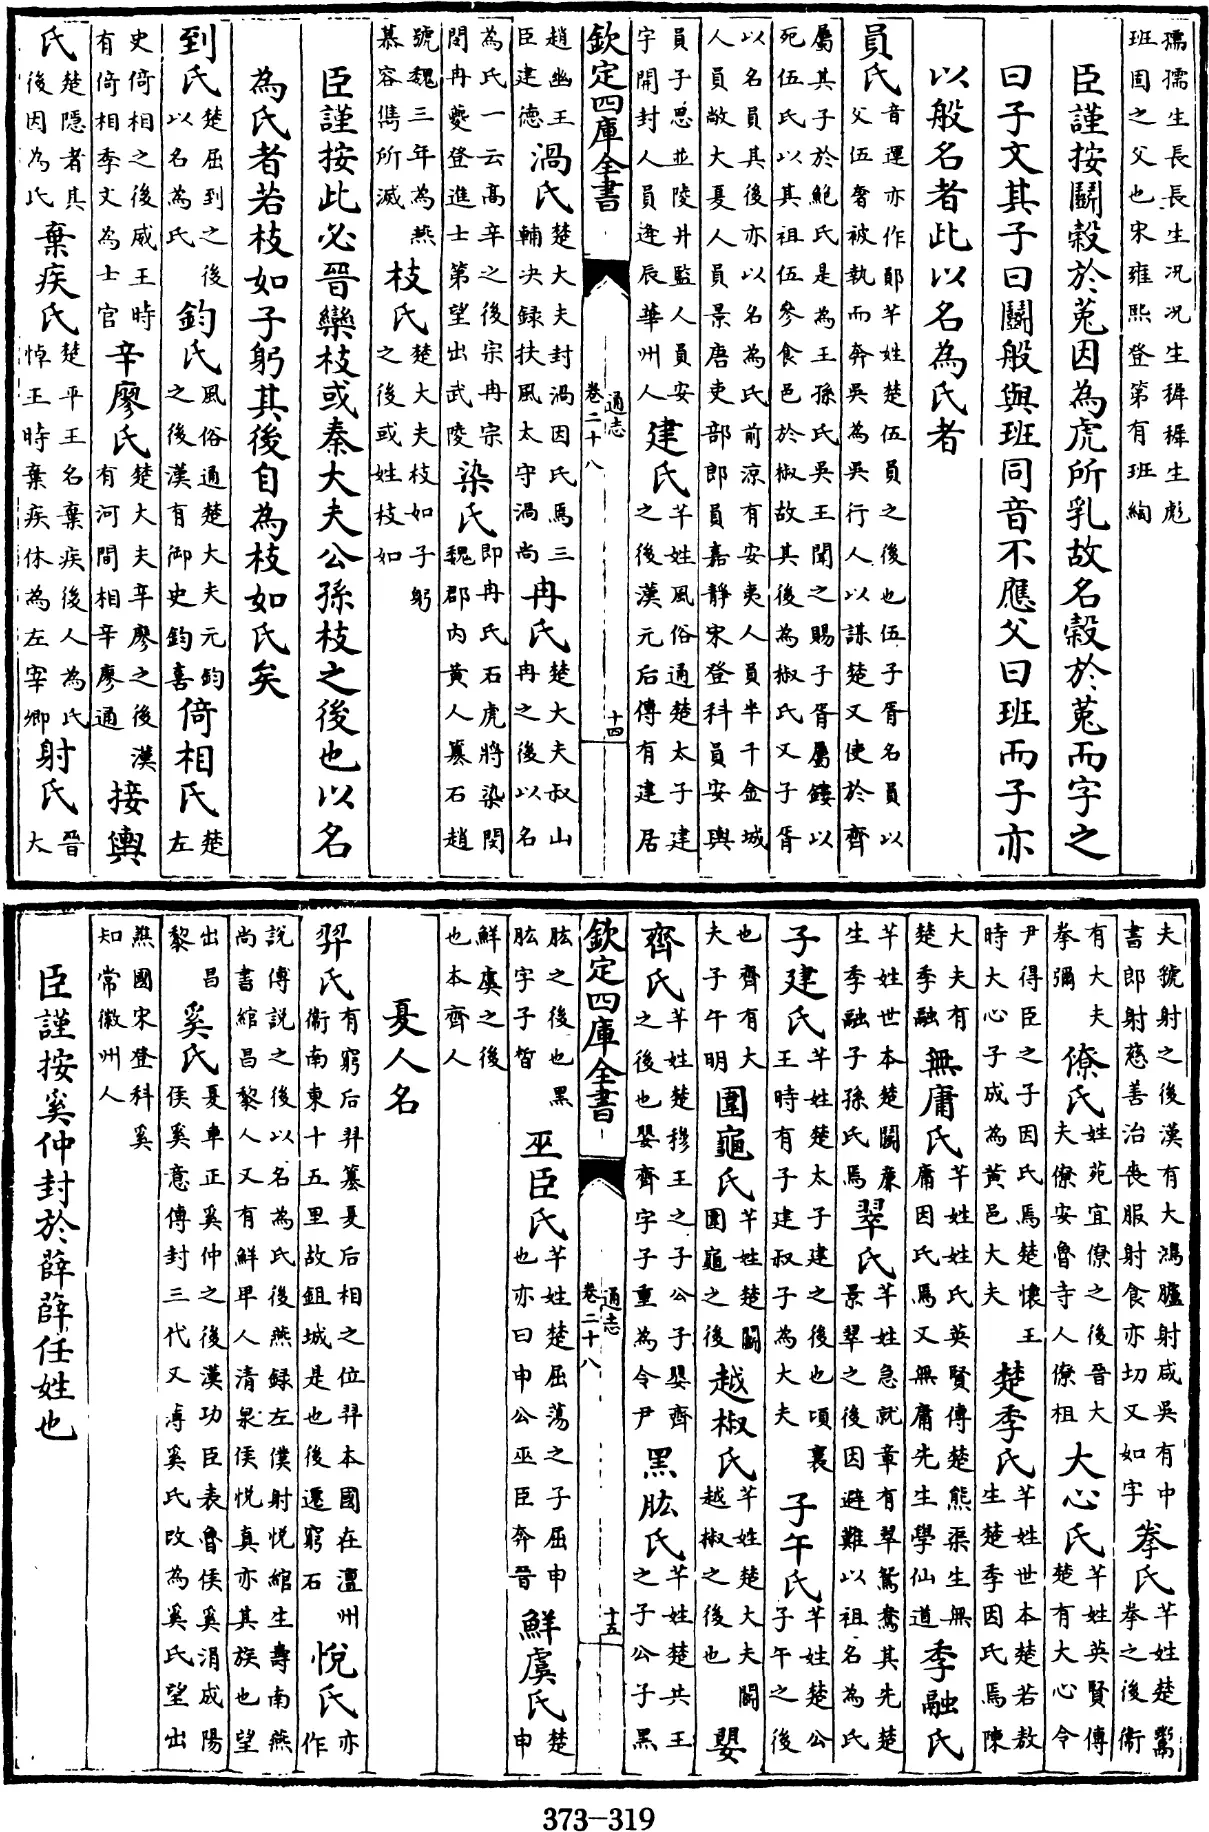 孺孺生長長生况况生穉穉生彪
班固之父也宋雍熙登第有班絢
臣謹按鬭穀於菟因為虎所乳故名穀於菟而字之
曰子文其子曰鬭般與班同音不應父曰班而子亦
以般名者此以名為氏者
員氏音運亦作鄖芊姓楚伍員之後也伍子胥名員以父伍奢被執而奔吳為吳行人以謀楚又使於齊
屬其子於鮑氏是為王孫氏吳王聞之賜子胥屬鏤以死伍氏以其祖伍參食邑於椒故其後為椒氏又子胥
以名員其後亦以名為氏前涼有安夷人員半千金城人員敞大夏人員景唐吏部郎員嘉靜宋登科員安輿
員子思並陵井監人員安字開封人員逢辰華州人建氏芊姓風俗通楚太子建之後漢元后傳有建居
欽定四庫全書 通志卷二十八 十四
趙幽王臣建德渦氏楚大夫封渦因氏焉三輔决録扶風太守渦尚冉氏楚大夫叔山冉之後以名
為氏一云高辛之後宗冉宗閔冉夔登進士第望出武陵染氏即冉氏石虎將染閔魏郡内黄人簒石趙
號魏三年為燕慕容儁所滅枝氏楚大夫枝如子躬之後或姓枝如
臣謹按此必晉欒枝或秦大夫公孫枝之後也以名
為氏者若枝如子躬其後自為枝如氏矣
到氏楚屈到之後以名為氏鈞氏風俗通楚大夫元鈞之後漢有御史鈞喜倚相氏楚左
史倚相之後威王時有倚相季文為士官辛廖氏楚大夫辛廖之後漢有河間相辛廖通接輿
氏楚隱者其後因為氏棄疾氏楚平王名棄疾後人為氏悼王時棄疾休為左宰卿射氏晉大
夫號射之後漢有大鴻臚射咸吳有中書郎射慈善治喪服射食亦切又如字拳氏芊姓楚鬻拳之後衞
有大夫拳彌僚氏姓苑宜僚之後晉大夫僚安魯寺人僚祖大心氏芊姓英賢傳楚有大心令
尹得臣之子因氏焉楚懷王時大心子成為黄邑大夫楚季氏芊姓世本楚若敖生楚季因氏焉陳
大夫有楚季融無庸氏芊姓姓氏英賢傳楚熊渠生無庸因氏焉又無庸先生學仙道季融氏
芊姓世本楚鬭廉生季融子孫氏焉翠氏芊姓急就章有翠鴛鴦其先楚景翠之後因避難以祖名為氏
子建氏芊姓楚太子建之後也頃襄王時有子建叔子為大夫子午氏芊姓楚公子午之後
也齊有大夫子午明圍龜氏芊姓楚鬭圍龜之後越椒氏芊姓楚大夫鬭越椒之後也嬰
齊氏芊姓楚穆王之子公子嬰齊之後也嬰齊字子重為令尹黑肱氏芊姓楚共王之子公子黑
欽定四庫全書 通志卷二十八 十五
肱之後也黑肱字子晳巫臣氏芊姓楚屈蕩之子屈申也亦曰申公巫臣奔晉鮮虞氏楚申
鮮虞之後也本齊人
夏人名
羿氏有窮后羿簒夏后相之位羿本國在澶州衞南東十五里故鉏城是也後遷窮石悅氏亦作
說傅説之後以名為氏後燕録左僕射悦綰生壽南燕尚書綰昌黎人又有鮮卑人清泉侯悅真亦其族也望
出昌黎奚氏夏車正奚仲之後漢功臣表魯侯奚涓成陽侯奚意傳封三代又溥奚氏改為奚氏望出
燕國宋登科奚知常徽州人
臣謹按奚仲封於薛薛任姓也
373-319